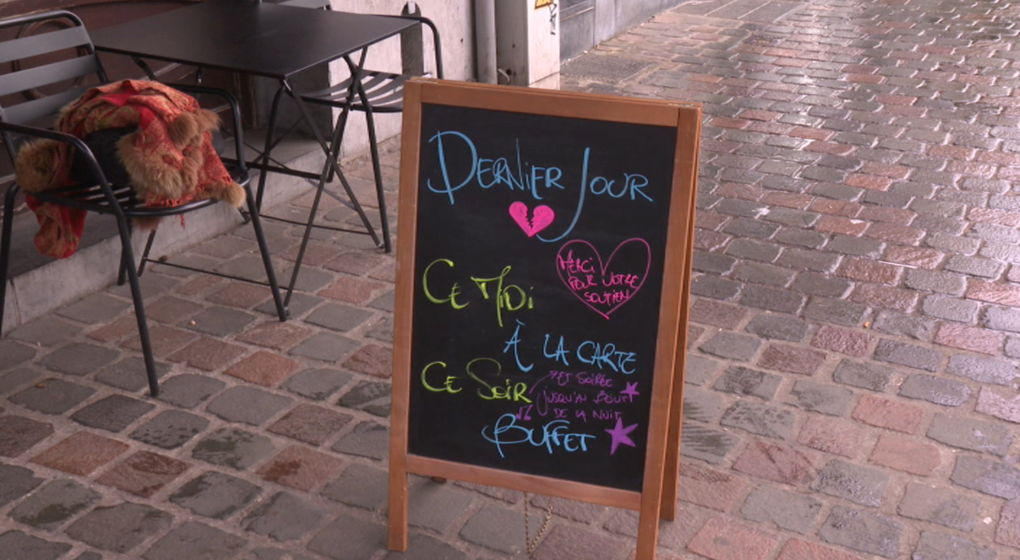 DERNIER JOUR
MERCI
POUR VOTRE
SOUTIEN
CE MIDI
À LA CARTE
CE SOIR
ET SOIRÉE
JUSQU'AU BOUT
DE LA NUIT
BUFFET